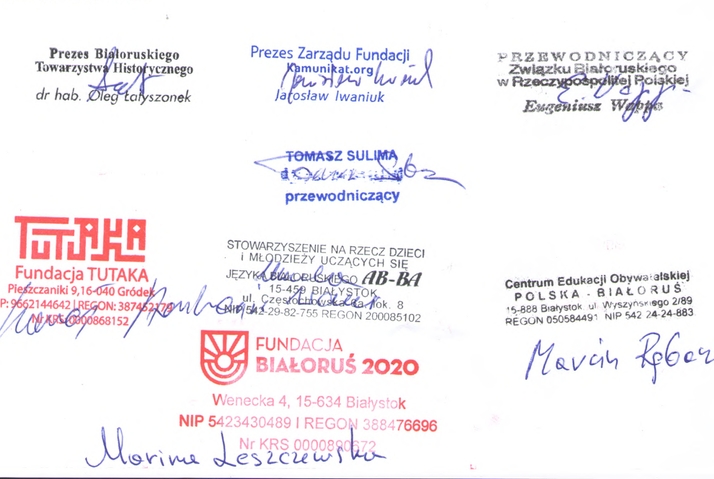 Prezes Białoruskiego
Towarzystwa Historycznego
dr hab. Oleg Łatyszonek
Prezes Zarządu Fundacji
Kamunikat.org
Jarosław Iwaniuk
PRZEWODNICZĄCY
Związku Białoruskiego
w Rzeczypospolitej Polskiej
Eugeniusz Wappa
TOMASZ SULIMA
przewodniczący
TUTAKA
Fundacja TUTAKA
Pieszczaniki 9, 16-040 Gródek
REGON: 387452
Nr KRS 0000868152
STOWARZYSZENIE NA RZECZ DZIECI
I MŁODZIEŻY UCZĄCYCH SIĘ
JĘZYKA BIAŁORUSKIEGO AB-BA
15-459 BIAŁYSTOK
ul. Częstochowska lok. 8
NIP 542-29-82-755 REGON 200085102
Centrum Edukacji Obywatelskiej
POLSKA - BIAŁORUŚ
15-888 Białystok ul. Wyszyńskiego 2/89
REGON 050584491 NIP 542 24-24-883
Marcin Rębacz
FUNDACJA
BIAŁORUŚ 2020
Wenecka 4, 15-634 Białystok
NIP 5423430489 | REGON 388476696
Nr KRS 0000890672
Maryna Leszczewska